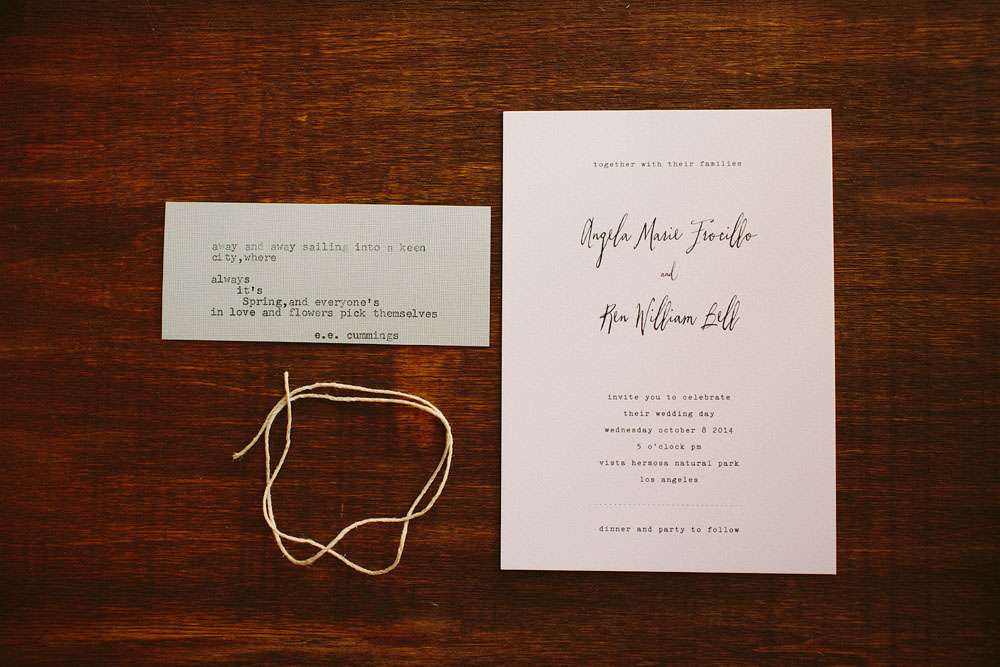 away and away sailing into a keen
city,where
always
it's
Spring,and everyone's
in love and flowers pick themselves
e.e. cummings
together with their families
Angela Marie Trocillo
and
Ren William Bell
invite you to celebrate
their wedding day
wednesday october 8 2014
5 o'clock pm
vista hermosa natural park
los angeles
dinner and party to follow